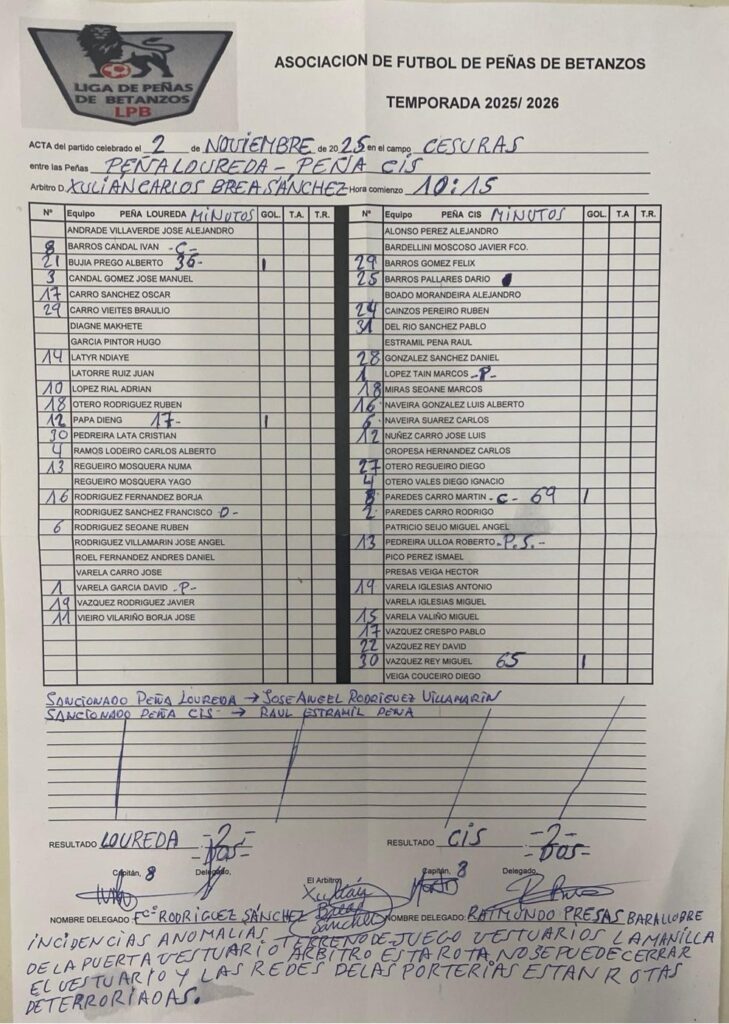 LIGA DE PEÑAS
DE BETANZOS
LPB
ASOCIACION DE FUTBOL DE PEÑAS DE BETANZOS
TEMPORADA 2025/ 2026
ACTA del partido celebrado el 2 de NOVIEMBRE de 2025 en el campo CESURAS
entre las Peñas PEÑA LOUREDA - PEÑA CIS
Arbitro D. XULIAN CARLOS BREA SÁNCHEZ Hora comienzo 10:15
Nº Equipo PEÑA LOUREDA MINUTOS GOL. T.A. T.R.
ANDRADE VILLAVERDE JOSE ALEJANDRO
8 BARROS CANDAL IVAN -C-
21 BUJIA PREGO ALBERTO 36- 1
3 CANDAL GOMEZ JOSE MANUEL
17 CARRO SANCHEZ OSCAR
29 CARRO VIEITES BRAULIO
DIAGNE MAKHETE
GARCIA PINTOR HUGO
14 LATYR NDIAYE
LATORRE RUIZ JUAN
10 LOPEZ RIAL ADRIAN
18 OTERO RODRIGUEZ RUBEN
12 PAPA DIENG 17- 1
30 PEDREIRA LATA CRISTIAN
4 RAMOS LODEIRO CARLOS ALBERTO
13 REGUEIRO MOSQUERA NUMA
REGUEIRO MOSQUERA YAGO
16 RODRIGUEZ FERNANDEZ BORJA
RODRIGUEZ SANCHEZ FRANCISCO -D-
6 RODRIGUEZ SEOANE RUBEN
RODRIGUEZ VILLAMARIN JOSE ANGEL
ROEL FERNANDEZ ANDRES DANIEL
VARELA CARRO JOSE
1 VARELA GARCIA DAVID -P-
19 VAZQUEZ RODRIGUEZ JAVIER
11 VIEIRO VILARIÑO BORJA JOSE
Nº Equipo PEÑA CIS MINUTOS GOL. T.A T.R.
ALONSO PEREZ ALEJANDRO
BARDELLINI MOSCOSO JAVIER FCO.
29 BARROS GOMEZ FELIX
25 BARROS PALLARES DARIO
BOADO MORANDEIRA ALEJANDRO
24 CAINZOS PEREIRO RUBEN
31 DEL RIO SANCHEZ PABLO
ESTRAMIL PENA RAUL
28 GONZALEZ SANCHEZ DANIEL
1 LOPEZ TAIN MARCOS -P-
18 MIRAS SEOANE MARCOS
16 NAVEIRA GONZALEZ LUIS ALBERTO
6 NAVEIRA SUAREZ CARLOS
12 NUÑEZ CARRO JOSE LUIS
OROPESA HERNANDEZ CARLOS
27 OTERO REGUEIRO DIEGO
4 OTERO VALES DIEGO IGNACIO
8 PAREDES CARRO MARTIN -C- 69 1
2 PAREDES CARRO RODRIGO
PATRICIO SEIJO MIGUEL ANGEL
13 PEDREIRA ULLOA ROBERTO -P.S.-
PICO PEREZ ISMAEL
PRESAS VEIGA HECTOR
19 VARELA IGLESIAS ANTONIO
VARELA IGLESIAS MIGUEL
15 VARELA VALIÑO MIGUEL
17 VAZQUEZ CRESPO PABLO
22 VAZQUEZ REY DAVID
30 VAZQUEZ REY MIGUEL 65 1
VEIGA COUCEIRO DIEGO
SANCIONADO PEÑA LOUREDA → JOSE ANGEL RODRIGUEZ VILLAMARIN
SANCIONADO PEÑA CIS → RAUL ESTRAMIL PENA
RESULTADO LOUREDA -2- -DOS-
RESULTADO CIS -2- -DOS-
Capitán, 8 Delegado, El Arbitro Capitán, 8 Delegado,
Xulián
Brea
Sánchez
NOMBRE DELEGADO Fcº RODRIGUEZ SÁNCHEZ NOMBRE DELEGADO: RAIMUNDO PRESAS BARALLOBRE
INCIDENCIAS ANOMALIAS TERRENO DE JUEGO VESTUARIOS LA MANILLA
DE LA PUERTA VESTUARIO ARBITRO ESTA ROTA NO SE PUEDE CERRAR
EL VESTUARIO Y LAS REDES DE LAS PORTERIAS ESTAN ROTAS
DETERRORIADAS.